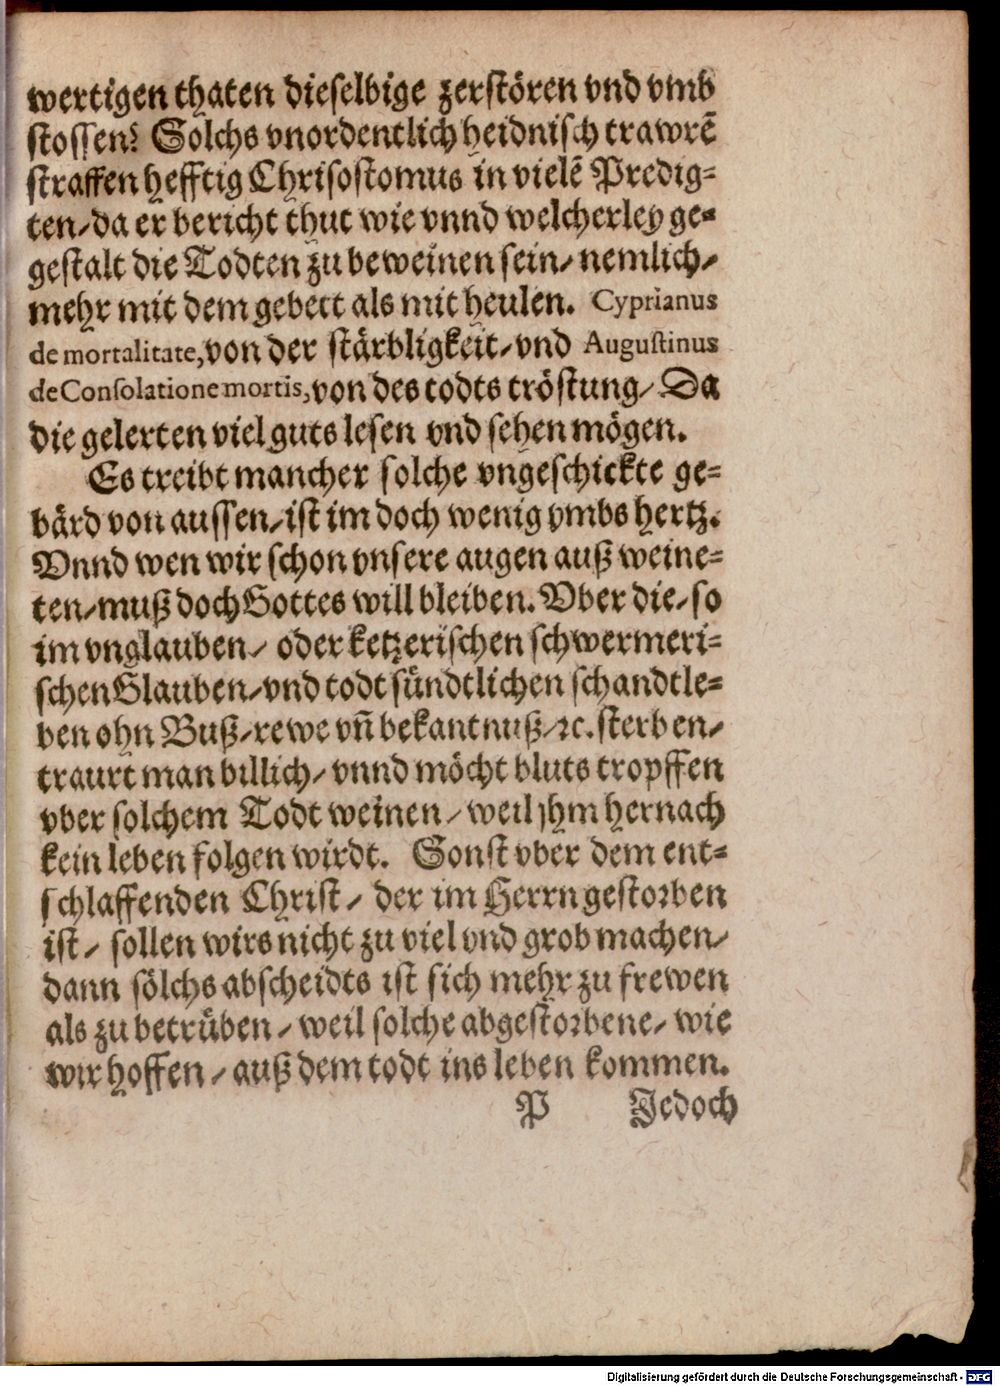 wertigen thaten dieselbige zerstören vnd vmb
stossen? Solchs vnordentlich heidnisch trawrẽ
straffen hefftig Chrisostomus in vielẽ Predig=
ten/ da er bericht thut wie vnnd welcherley ge=
gestalt die Todten zu beweinen sein/ nemlich/
mehr mit dem gebett als mit heulen. Cyprianus
de mortalitate, von der stärbligkeit/ vnd Augustinus
de Consolatione mortis, von des todts tröstung/ Da
die gelerten viel guts lesen vnd sehen mögen.
Es treibt mancher solche vngeschickte ge=
bärd von aussen/ ist im doch wenig vmbs hertz.
Vnnd wen wir schon vnsere augen auß weine=
ten/ muß doch Gottes will bleiben. Vber die/ so
im vnglauben/ oder ketzerischen schwermeri=
schen Glauben/ vnd todt sündtlichen schandtle=
ben ohn Buß/ rewe vñ bekantnuß/ ꝛc. sterben/
traurt man billich/ vnnd möcht bluts tropffen
vber solchem Todt weinen/ weil jhm hernach
kein leben folgen wirdt. Sonst vber dem ent=
schlaffenden Christ/ der im Herrn gestorben
ist/ sollen wirs nicht zu viel vnd grob machen/
dann sölchs abscheidts ist sich mehr zu frewen
als zu betrüben/ weil solche abgestorbene/ wie
wir hoffen/ auß dem todt ins leben kommen.
P Jedoch
Digitalisierung gefördert durch die Deutsche Forschungsgemeinschaft - DFG